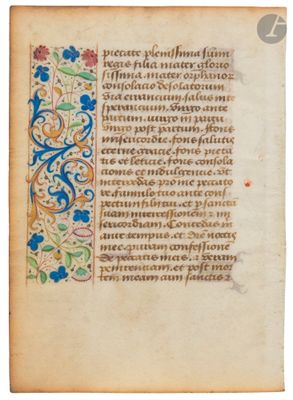 pietate plenissima summi
regis filia mater glorio
sissima mater orphanor
consolacio desolatorum
via errancium salus in te
sperancium. Virgo ante
partum. virgo in partu
virgo post partum. fons
misericordie. fons salutis
et gracie. fons pieta
tis et leticie. fons consola
cionis et indulgencie. ut
intercedas pro me peccato
re famulo tuo ante cons
pectum filii tui. et per sancta
suam intercessionem
sericordiam. Concedas m
ante tempus. et diem
mee. puram confessione
de peccatis meis. veram
penitentiam. et post mor
tem meam cum sanctis